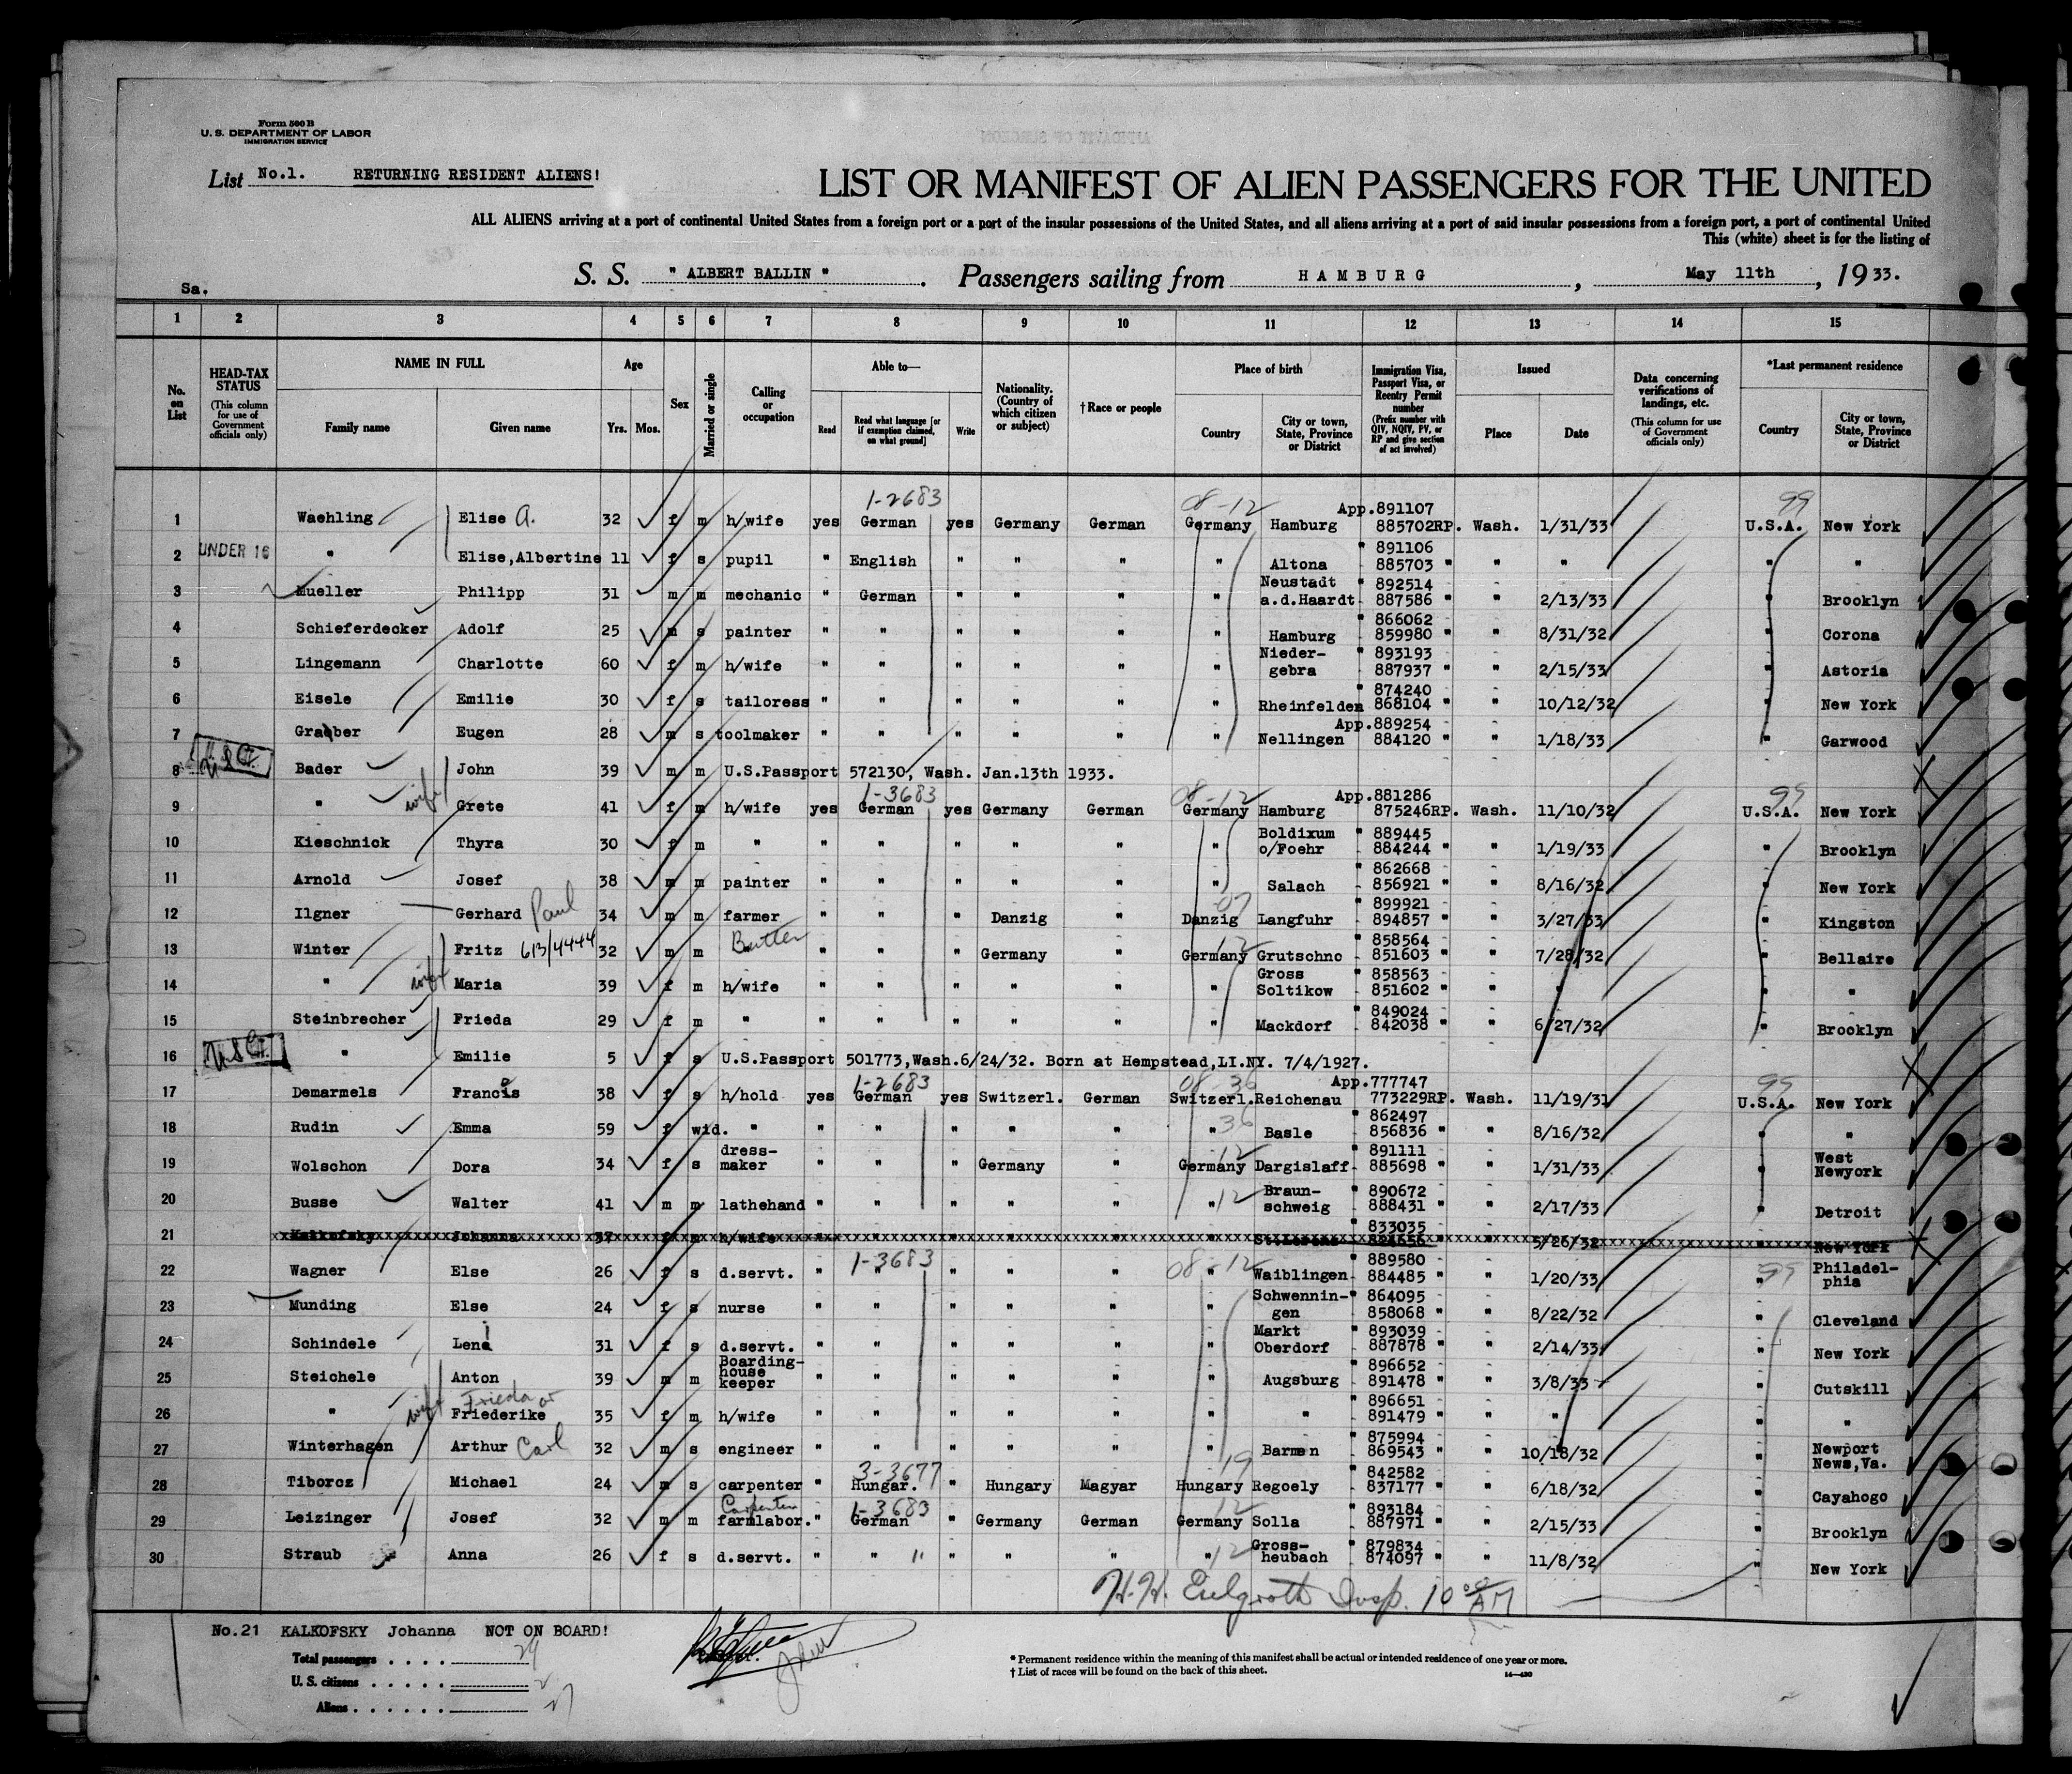 Form 500 B
U. S. DEPARTMENT OF LABOR
IMMIGRATION SERVICE
List No.1. RETURNING RESIDENT ALIENS!
LIST OR MANIFEST OF ALIEN PASSENGERS FOR THE UNITED
ALL ALIENS arriving at a port of continental United States from a foreign port or a port of the insular possessions of the United States, and all aliens arriving at a port of said insular possessions from a foreign port, a port of continental United
This (white) sheet is for the listing of
Sa. S. S. " ALBERT BALLIN ". Passengers sailing from HAMBURG, May 11th, 1933.
1 2 3 4 5 6 7 8 9 10 11 12 13 14 15
No. on List
HEAD-TAX STATUS (This column for use of Government officials only)
NAME IN FULL Family name Given name
Age Yrs. Mos.
Sex
Married or single
Calling or occupation
Able to— Read Read what language [or if exemption claimed, on what ground] Write
Nationality. (Country of which citizen or subject)
†Race or people
Place of birth Country City or town, State, Province or District
Immigration Visa, Passport Visa, or Reentry Permit number (Prefix number with QIV, NQIV, PV, or RP and give section of act involved)
Issued Place Date
Data concerning verifications of landings, etc. (This column for use of Government officials only)
*Last permanent residence Country City or town, State, Province or District
1-2683 08-12 App.891107 99
1 Waehling Elise A. 32 f m h/wife yes German yes Germany German Germany Hamburg 885702RP. Wash. 1/31/33 U.S.A. New York
2 UNDER 16 " Elise,Albertine 11 f s pupil " English " " " " Altona " 891106 885703 " " " " "
3 Mueller Philipp 31 m m mechanic " German " " " " Neustadt a.d.Haardt " 892514 887586 " " 2/13/33 " Brooklyn
4 Schieferdecker Adolf 25 m s painter " " " " " " Hamburg " 866062 859980 " " 8/31/32 " Corona
5 Lingemann Charlotte 60 f m h/wife " " " " " " Nieder-gebra " 893193 887937 " " 2/15/33 " Astoria
6 Eisele Emilie 30 f s tailoress " " " " " " Rheinfelden " 874240 868104 " " 10/12/32 " New York
7 Graeber Eugen 28 m s toolmaker " " " " " " Nellingen App.889254 884120 " " 1/18/33 " Garwood
8 Bader John 39 m m U.S.Passport 572130, Wash. Jan.13th 1933.
1-3683 08-12 App.881286 99
9 " wife Grete 41 f m h/wife yes German yes Germany German Germany Hamburg 875246RP. Wash. 11/10/32 U.S.A. New York
10 Kieschnick Thyra 30 f m " " " " " " " Boldixum o/Foehr " 889445 884244 " " 1/19/33 " Brooklyn
11 Arnold Josef 38 m m painter " " " " " " Salach " 862668 856921 " " 8/16/32 " New York
12 Ilgner Gerhard Paul 34 m m farmer " " " Danzig " Danzig 07 Langfuhr " 899921 894857 " " 3/27/33 " Kingston
13 Winter Fritz 613/4444 32 m m " " " Germany " Germany 12 Grutschno " 858564 851603 " " 7/28/32 " Bellaire
14 " wife Maria 39 f m h/wife " " " " " " Gross Soltikow " 858563 851602 " " " " "
15 Steinbrecher Frieda 29 f m " " " " " " " Mackdorf " 849024 842038 " " 6/27/32 " Brooklyn
16 " Emilie 5 f s U.S.Passport 501773,Wash.6/24/32. Born at Hempstead,LI.NY. 7/4/1927.
1-2683 08-36 App.777747 99
17 Demarmels Francis 38 f s h/hold yes German yes Switzerl. German Switzerl. Reichenau 773229RP. Wash. 11/19/31 U.S.A. New York
18 Rudin Emma 59 f wid. " " " " " " " 36 Basle " 862497 856836 " " 8/16/32 " "
19 Wolschon Dora 34 f s dress-maker " " " Germany " Germany 12 Dargislaff " 891111 885698 " " 1/31/33 " West Newyork
20 Busse Walter 41 m m lathehand " " " " " " 12 Braun-schweig " 890672 888431 " " 2/17/33 " Detroit
21 Kalkofsky Johanna 37 f m h/wife " 833035 824656 " " 5/26/32 " New York
22 Wagner Else 26 f s d.servt. " 1-3683 " " " " 08-12 " Waiblingen " 889580 884485 " " 1/20/33 99 " Philadel-phia
23 Munding Else 24 f s nurse " " " " " " Schwennin-gen " 864095 858068 " " 8/22/32 " Cleveland
24 Schindele Leni 31 f s d.servt. " " " " " " Markt Oberdorf " 893039 887878 " " 2/14/33 " New York
25 Steichele Anton 39 m m Boarding-house keeper " " " " " " Augsburg " 896652 891478 " " 3/8/33 " Cutskill
26 " wife Frieda or Friederike 35 f m h/wife " " " " " " " " 896651 891479 " " " " "
27 Winterhagen Arthur Carl 32 m s engineer " " " " " " Barmen " 875994 869543 " " 10/18/32 " Newport News,Va.
28 Tiborcz Michael 24 m s carpenter " 3-3677 Hungar. " Hungary Magyar Hungary 19 Regoely " 842582 837177 " " 6/18/32 " Cayahogo
29 Leizinger Josef 32 m m Carpenter farmlabor. " 1-3683 German " Germany German Germany 12 Solla " 893184 887971 " " 2/15/33 " Brooklyn
30 Straub Anna 26 f s d.servt. " " " " " " " 12 Gross-heubach " 879834 874097 " " 11/8/32 " New York
Insp. 10 00 AM
No.21 KALKOFSKY Johanna NOT ON BOARD!
Total passengers . . . . 29
U. S. citizens . . . . . 2
Aliens . . . . . . 27
* Permanent residence within the meaning of this manifest shall be actual or intended residence of one year or more.
† List of races will be found on the back of this sheet.
14—430